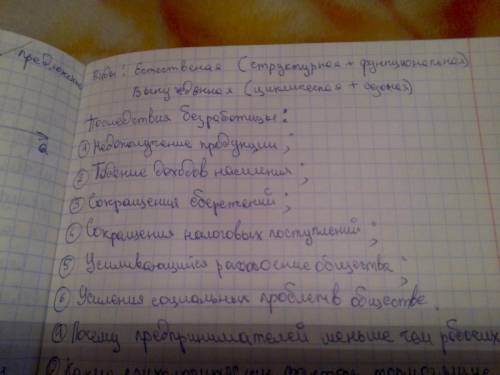 предложени
Виды: Естественая (структурная + функциональная)
Вынужденная (циклическая + сезоная)
Последствия безработицы:
① Недополучение продукции;
② Падение доходов населения;
③ Сокращения сбережений;
④ Сокращения налоговых поступлений;
⑤ Усиливающийся общества;
⑥ Усиления социальных проблем в обществе.
Почему предпринимателей меньше чем рабочих